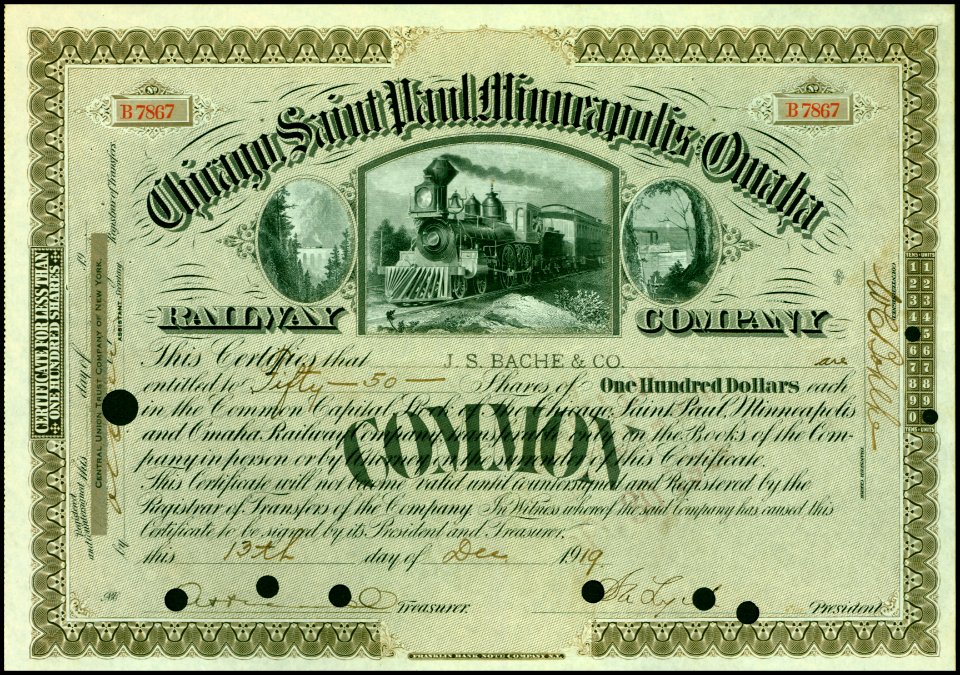 B 7867
B 7867
Chicago, Saint Paul, Minneapolis & Omaha
RAILWAY COMPANY
This Certifies that J. S. BACHE & CO. are
entitled to Fifty—50— Shares of One Hundred Dollars each
in the Common Capital Stock of the Chicago, Saint Paul, Minneapolis
and Omaha Railway Company, transferable only on the Books of the Com-
pany in person or by Attorney of this Certificate.
This Certificate will not become valid until countersigned and Registered by the
Registrar of Transfers of the Company. In Witness whereof the said Company has caused this
Certificate to be signed by its President and Treasurer,
this 13th day of Dec 1919
COMMON
No. Treasurer. President.
FRANKLIN BANK NOTE COMPANY N.Y.
CERTIFICATE FOR LESS THAN
ONE HUNDRED SHARES
Registered
and Countersigned this day of 19
CENTRAL UNION TRUST COMPANY OF NEW YORK,
by ASSISTANT Secretary. Registrar of Transfers
COUNTERSIGNED
TRANSFER CLERK
TENS UNITS
1 1
2 2
3 3
4 4
5
6 6
7 7
8 8
9 9
0
TENS UNITS